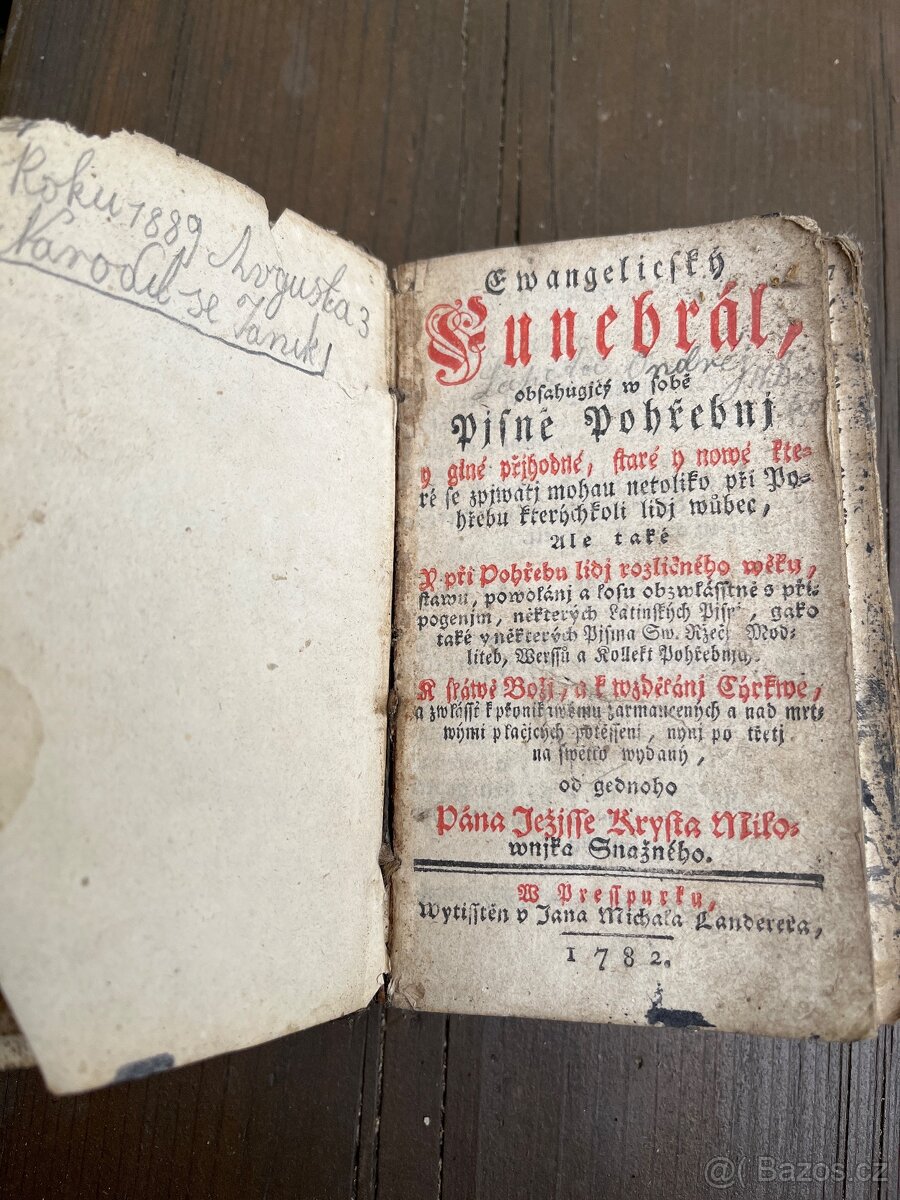 Roku 1889 Avgusta 3
Narodil se Janik
Ewangelicský
Funebrál,
obsahugjcý w sobě
Pjsně Pohřebnj
y giné přjhodné, staré y nowé kte-
ré se zpjwatj mohau netoliko při Po-
hřebu kterýchkoli lidj wůbec,
Ale také
Y při Pohřebu lidj rozličného wěku,
stawu, powolánj a losu obzwlásstně s při-
pogenjm, některých Latinských Pjsnj, gako
také y některých Pjsma Sw. Ržečj Mod-
liteb, Werssů a Kollekt Pohřebnjch.
K sláwě Božj, a k wzdělánj Cýrkwe,
a zwlásst k zarmaucených a nad mrt-
wými plačjcých potěssenj, nynj po třetj
na swětlo wydaný,
od gednoho
Pána Ježjsse Krysta Milo-
wnjka Snažného.
W Presspurku,
Wytisstěn v Jana Michala Landerera,
1782.
@( Bazos.cz